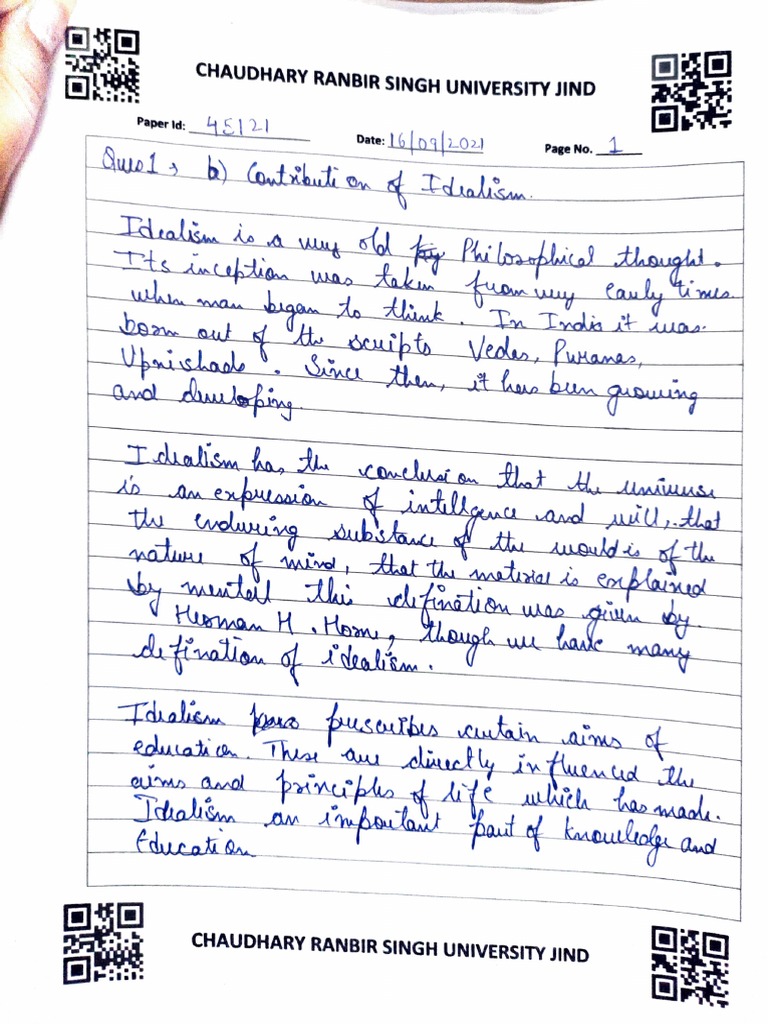 CHAUDHARY RANBIR SINGH UNIVERSITY JIND
Paper Id: 45121 Date: 16/09/2021 Page No. 1
Ques1, b) Contribution of Idealism.
Idealism is a very old Philosophical thought.
Its inception was taken from very early times
when man began to think. In India it was
born out of the scripts Vedas, Puranas,
Upnishads. Since then, it has been growing
and developing.
Idealism has the conclusion that the universe
is an expression of intellgence and will, that
the enduring substance of the world is of the
nature of mind, that the material is explained
by mental this defination was given by
Herman H. Horne, though we have many
defination of idealism.
Idealism prescribes certain aims of
education. These are directly influenced the
aims and principles of life which has made
Idealism an important part of knowledge and
Education
CHAUDHARY RANBIR SINGH UNIVERSITY JIND